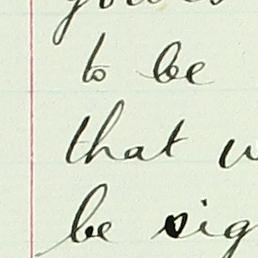 to be
that
be sig